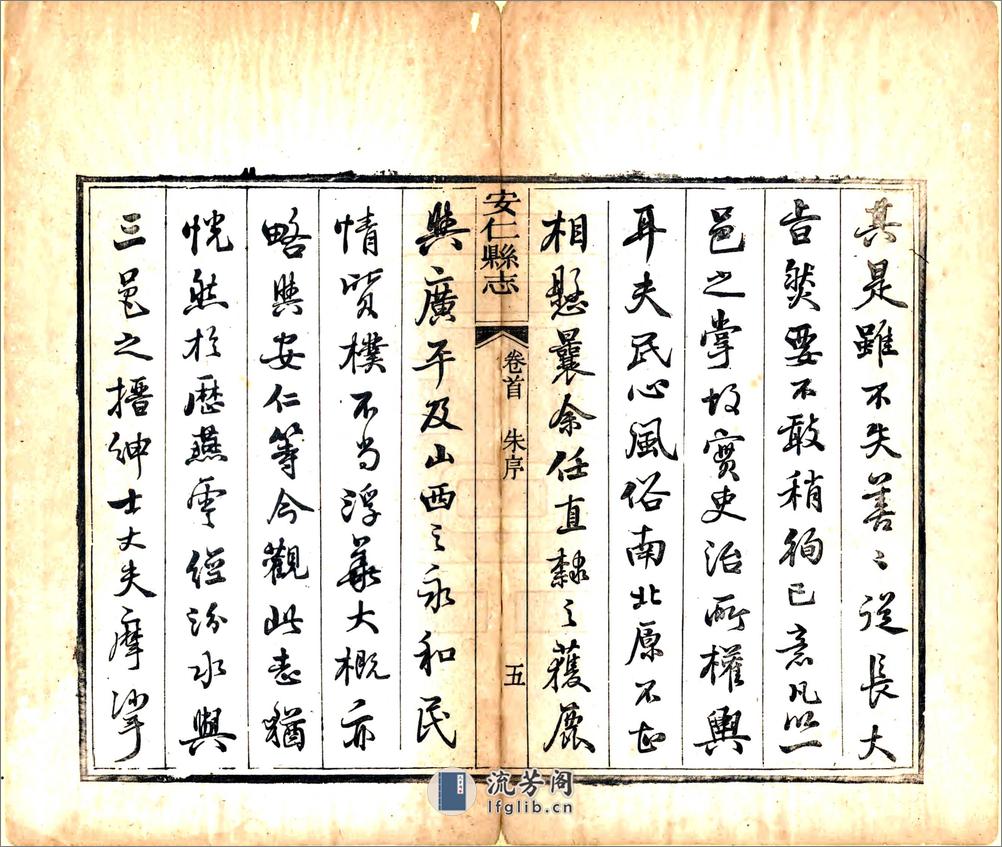 其是雖不失善善從長大
旨然要不敢稍徇已意凡以一
邑之掌故實吏治所權輿
耳夫民心風俗南北原不甚
相懸曩余任直隸之獲鹿
安仁縣志
卷首 朱序
五
與廣平及山西之永和民
情質樸不尚浮華大概亦
略與安仁等今觀此志猶
恍然於歷燕雲經汾水與
三邑之搢紳士大夫摩挲
流芳阁
lfglib.cn